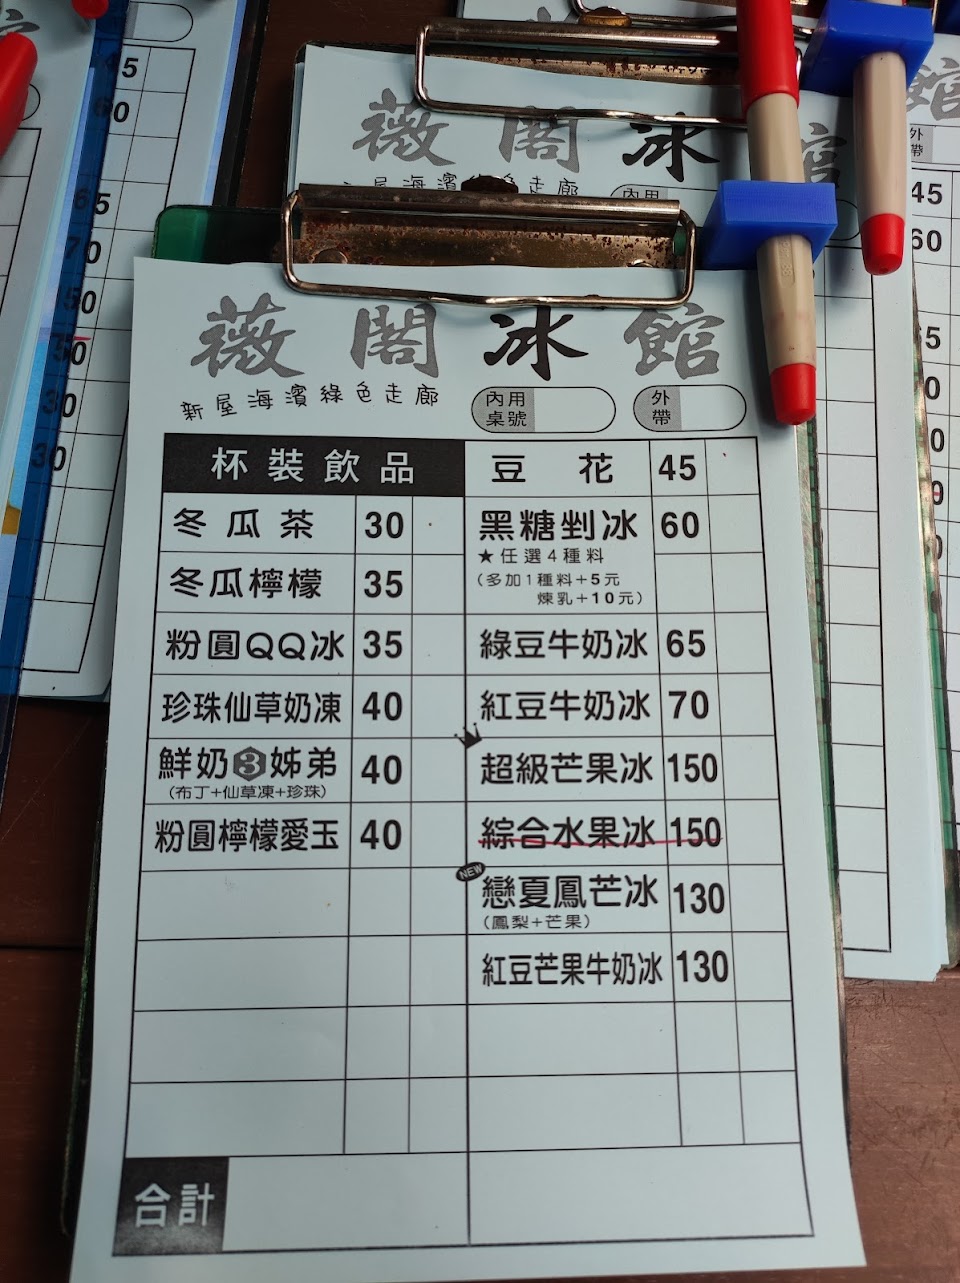 薇閣冰館
新屋海濱綠色走廊
內用
桌號
外
帶
杯裝飲品
冬瓜茶 30
冬瓜檸檬 35
粉圓QQ冰 35
珍珠仙草奶凍 40
鮮奶3姊弟 40
(布丁+仙草凍+珍珠)
粉圓檸檬愛玉 40
豆花 45
黑糖剉冰 60
★任選4種料
(多加1種料+5元
煉乳+10元)
綠豆牛奶冰 65
紅豆牛奶冰 70
超級芒果冰 150
綜合水果冰 150
NEW
戀夏鳳芒冰 130
(鳳梨+芒果)
紅豆芒果牛奶冰 130
合計
薇閣冰館
新屋海濱綠色走廊
內用
館
外
帶
45
60
65
70
45
60
65